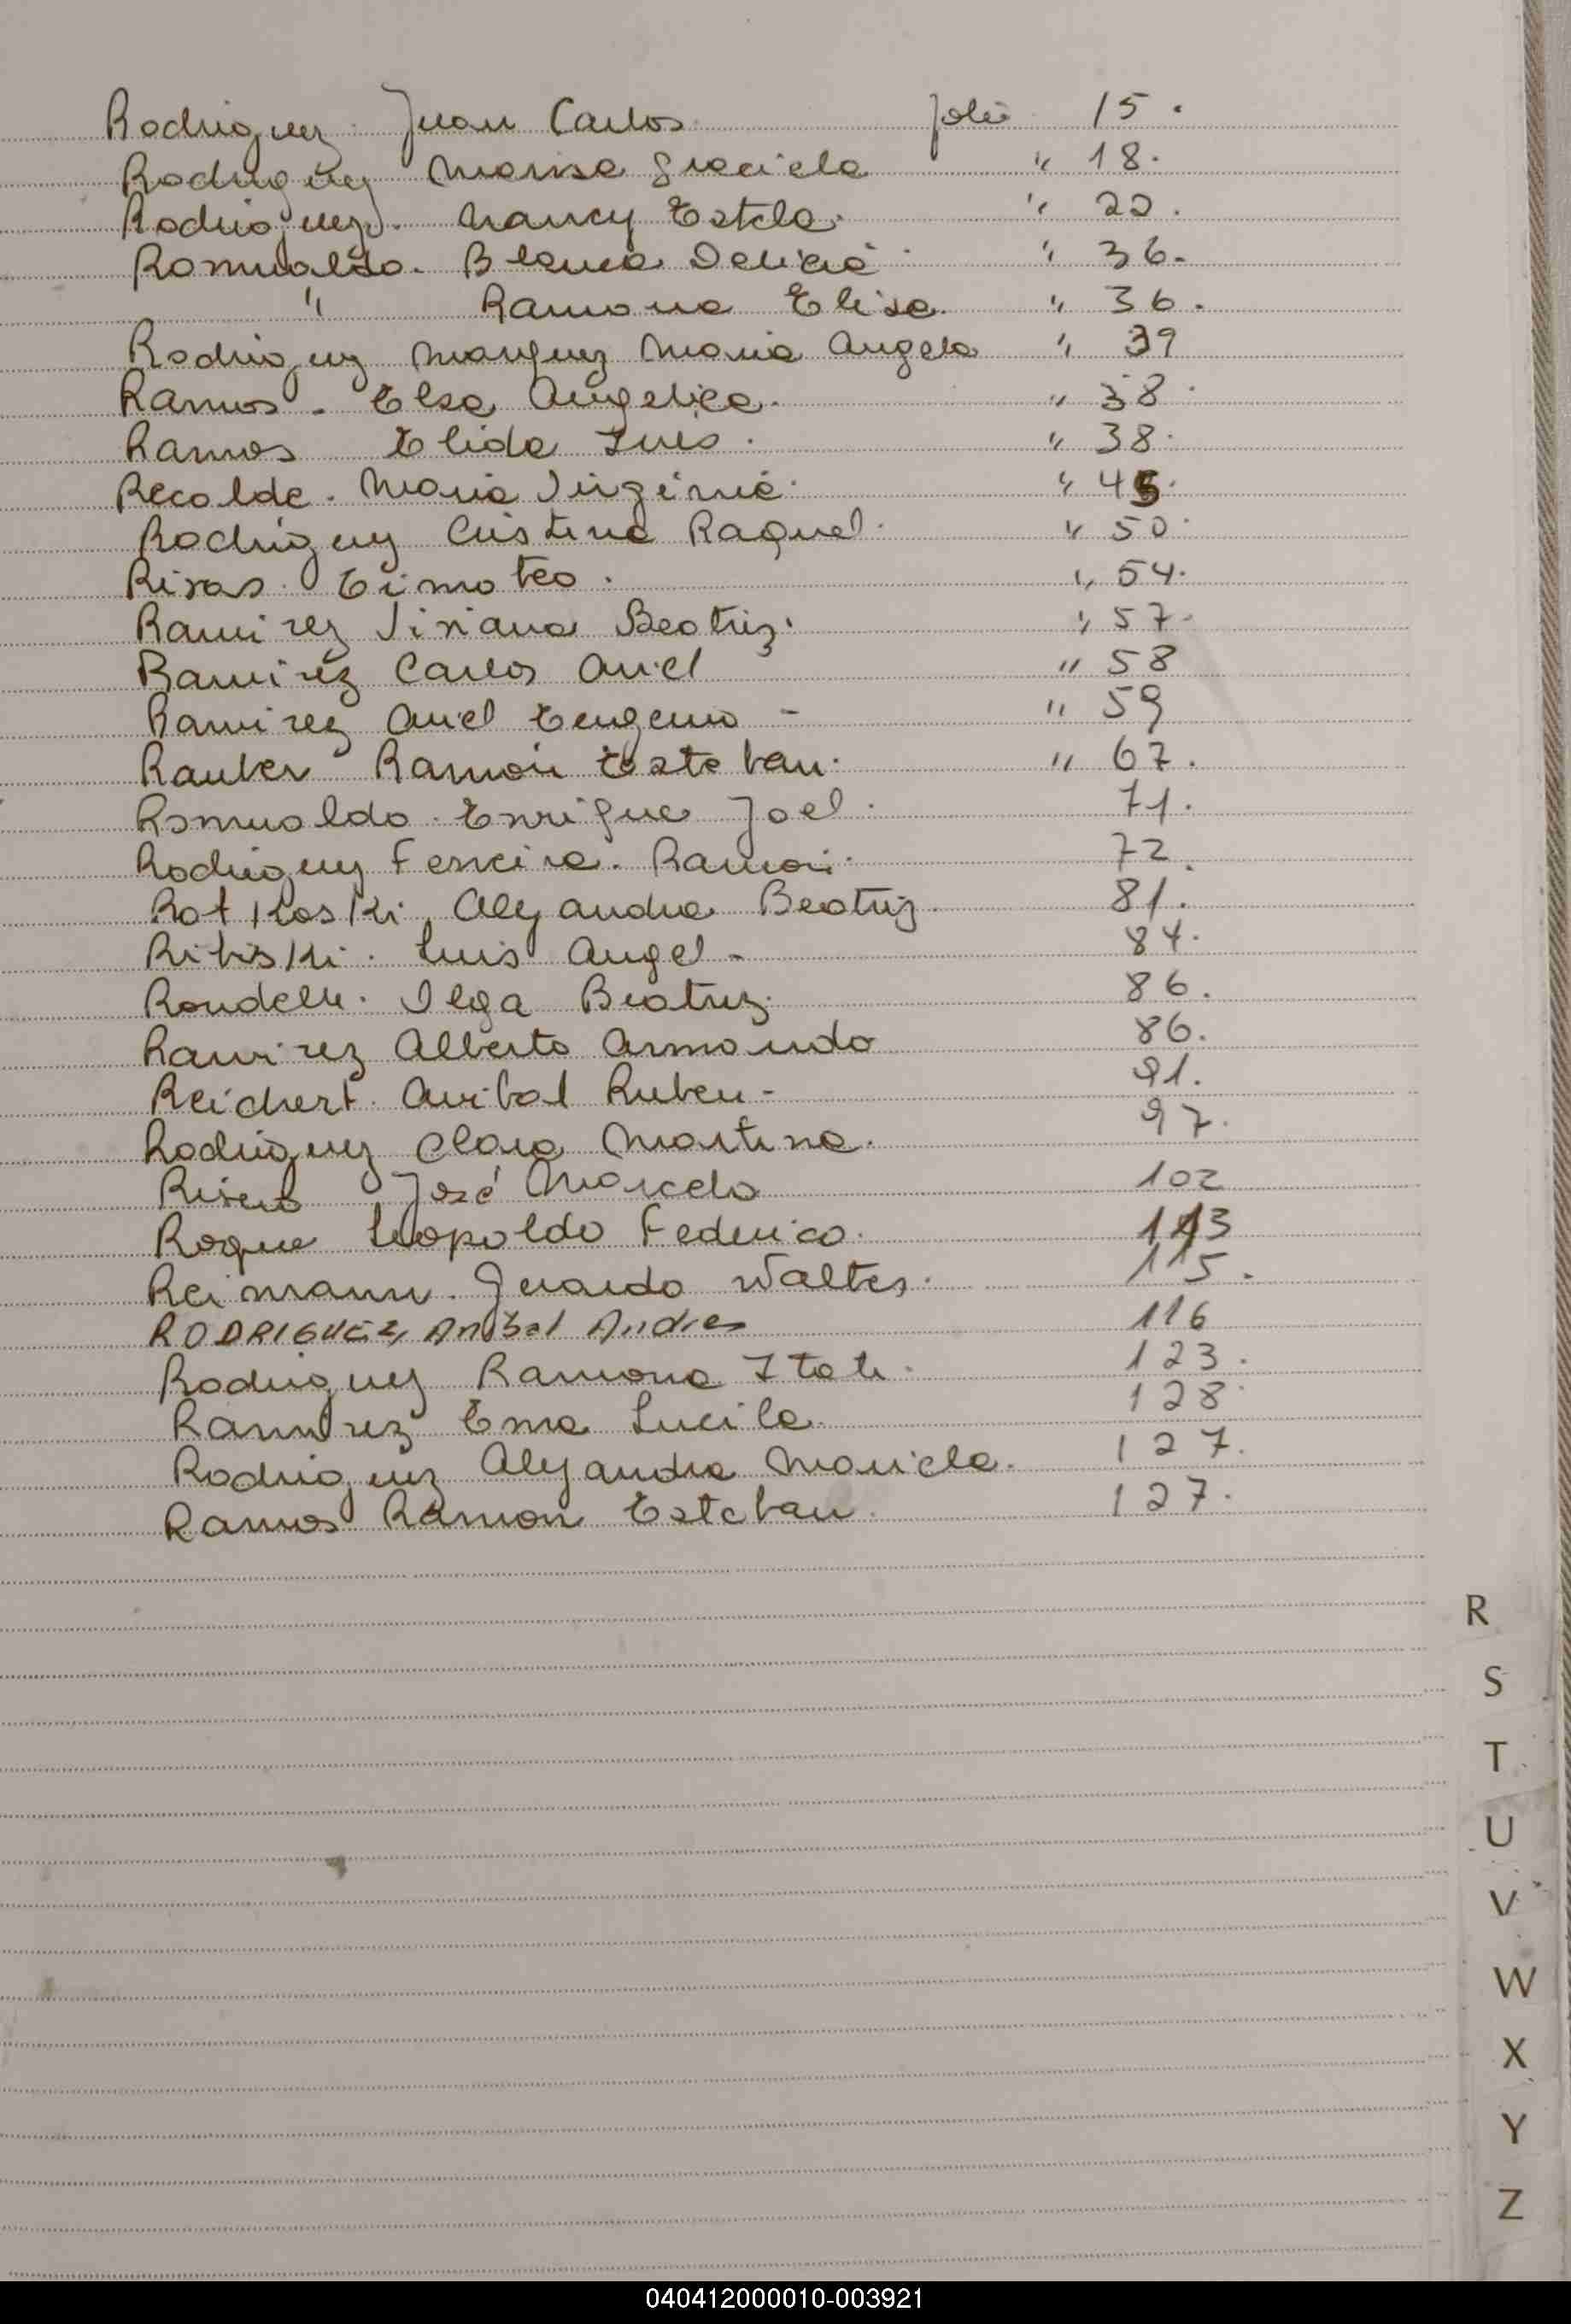 Rodriguez Juan Carlos folio 15.
Rodriguez Marisa Graciela " 18.
Rodriguez. Nancy Estela. " 22.
Romualdo. Blanca Delicia " 36.
" Ramona Elisa. " 36.
Rodriguez Marquez Maria Angela " 39
Ramos - Elsa Angelica. " 38.
Ramos Elida Ines. " 38.
Recalde. Maria Virginia. " 45.
Rodriguez Cristina Raquel. " 50.
Rivas. Timoteo. " 54.
Ramirez Viviana Beatriz. " 57.
Ramirez Carlos Ariel " 58
Ramirez Ariel Eugenio - " 59
Rauber Ramón Esteban. " 67.
Romualdo. Enrique Joel. 71.
Rodriguez Ferreira. Ramón. 72.
Rotkoski, Alejandra Beatriz. 81.
Ribiski. Luis Angel - 84.
Rondelli. Ilga Beatriz. 86.
Ramirez Alberto Armando 86.
Reichert. Anibal Ruben - 91.
Rodriguez Clara Martina. 97.
José Marcelo 102
Roque Leopoldo Federico. 113
Reimann. Gerardo Walter. 115.
RODRIGUEZ, Anibal Andres 116
Rodriguez Ramona Itati. 123.
Ramirez Ema Lucila. 128.
Rodriguez Alejandra Mariela. 127.
Ramos Ramon Esteban. 127.
R
S
T
U
V
W
X
Y
Z
040412000010-003921